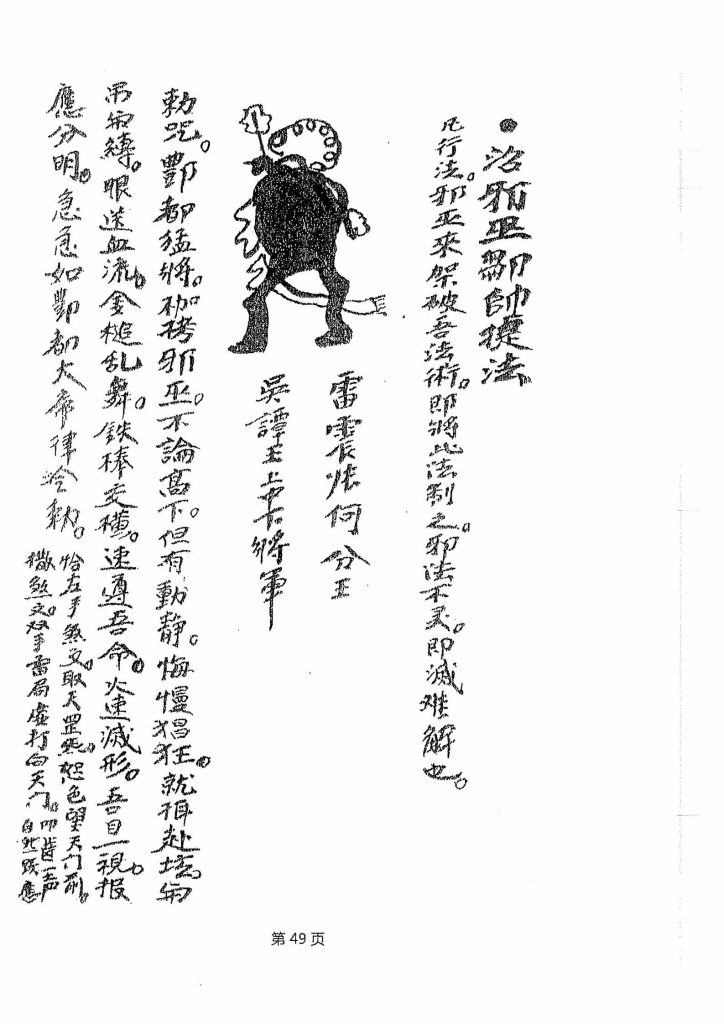 ●治邪巫酆帥捉法
凡行法。邪巫來架破吾法術。即將此法制之。邪法不灵。即滅难解也。
雷震張何分王
吳譚王上中下將軍
勅咒。酆都猛將。枷拷邪巫。不論高下。但有動静。侮慢猖狂。就拜赴壇。
吊 縛。眼送血流。金槌乱舞。鉄棒交横。速遵吾命。火速滅形。吾目一視。报
應分明。急急如酆都大帝律令勅。
恰左手煞文。取天罡炁。怒色望天门前。
撒煞文。双手雷局虚打向天门。叩齒一声自然跌應
第 49 页